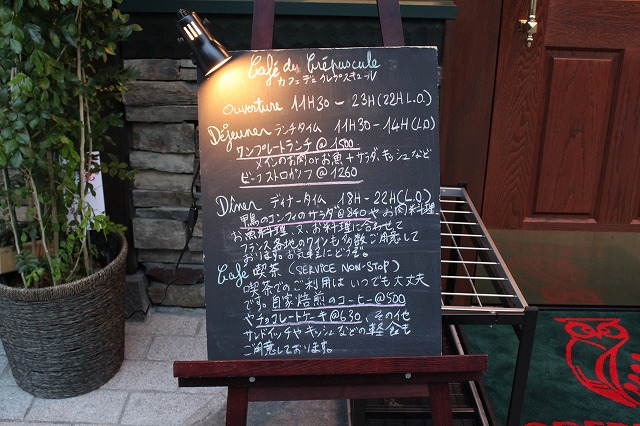 Café du Crépuscule
カフェデュクレプスキュール
Ouverture 11H30 - 23H (22H L.O)
Déjeuner ランチタイム 11H30 - 14H (L.O)
ワンプレートランチ @1500
メインのお肉 or お魚 + サラダ、キッシュなど
ビーフストロガノフ @1260
Dîner ディナータイム 18H - 22H (L.O)
鴨のコンフィのサラダ @840 や お肉料理、
お魚料理、又、お料理に合わせて
フランス各地のワインも多数ご用意して
おります。お気軽にどうぞ。
Café 喫茶 (SERVICE NON-STOP)
喫茶でのご利用は いつでも 大丈夫
です。自家焙煎のコーヒー @500
や チョコレートケーキ @630、その他
サンドイッチや キッシュなどの軽食も
ご用意しております。